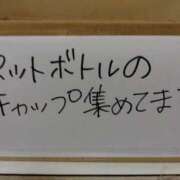 ペットボトルの
キャップ集めてます